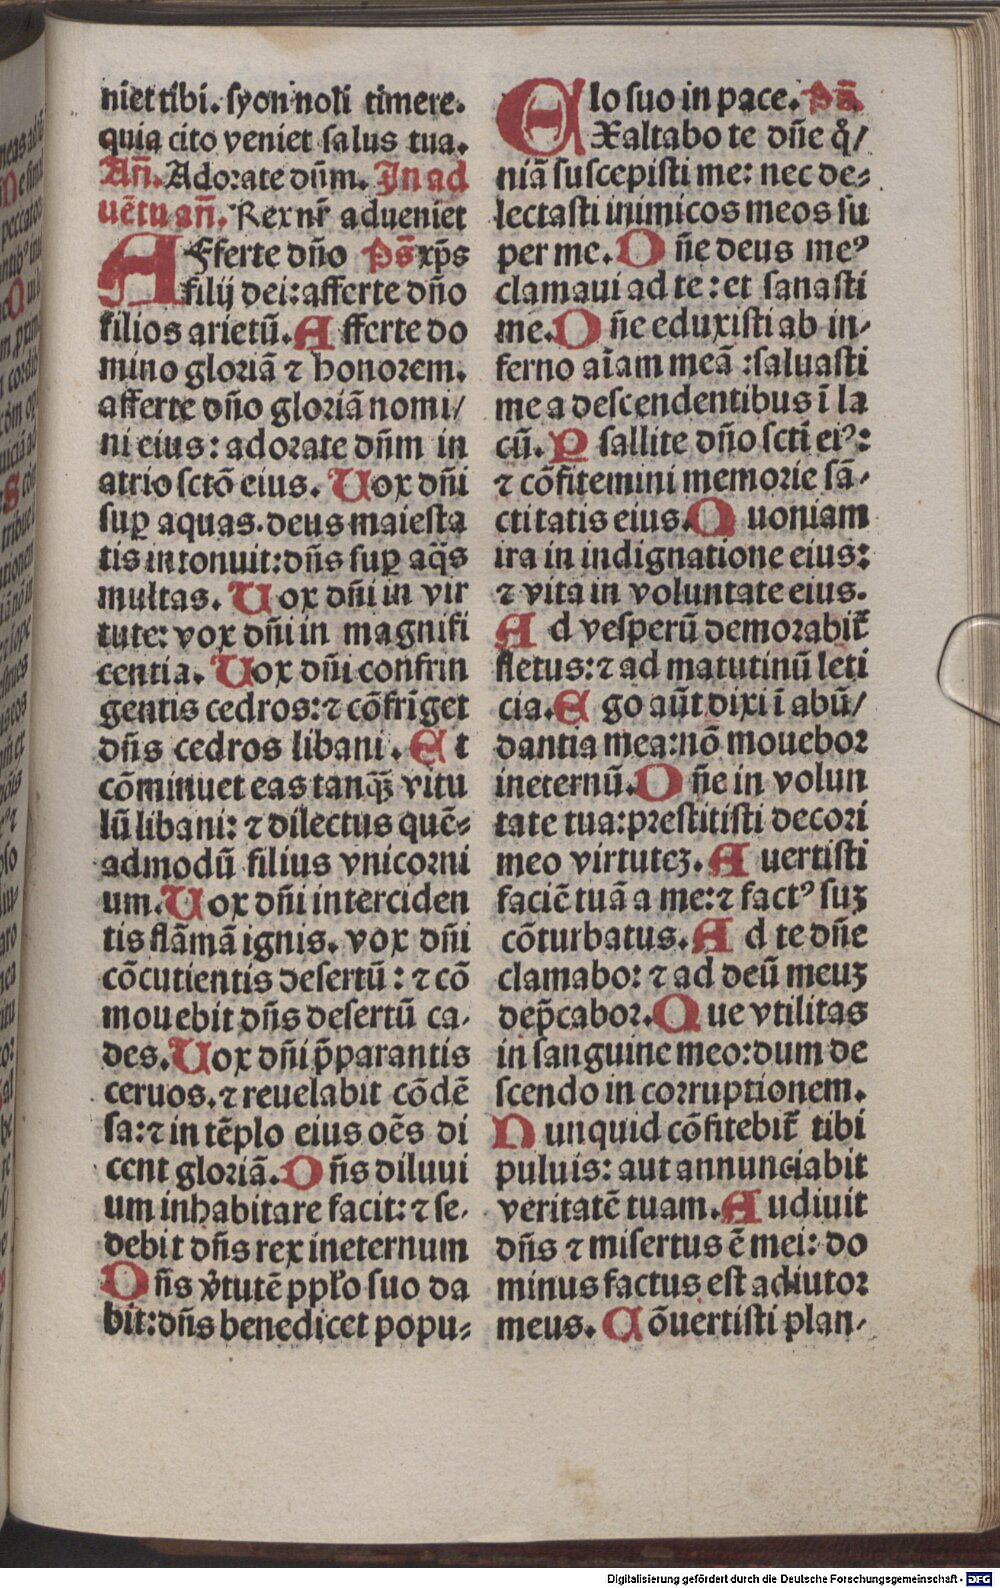 niet tibi. syon noli timere.
quia cito veniet salus tua.
Añ. Adorate dñm. In ad
uētu añ. Rex nr̄ adueniet
AFferte dño p̄s xp̄s
filij dei: afferte dño
filios arietū. Afferte do
mino gloriā ⁊ honorem.
afferte dño gloriā nomi/
ni eius: adorate dñm in
atrio sctō eius. Uox dñi
suꝑ aquas. deus maiesta
tis intonuit: dñs suꝑ aq̄s
multas. Uox dñi in vir
tute: vox dñi in magnifi
centia. Uox dñi confrin
gentis cedros: ⁊ cōfrīget
dñs cedros libani. Et
cōminuet eas tanq̄ʒ vitu
lū libani: ⁊ dilectus quē⸗
admodū filius vnicorni
um. Uox dñi interciden
tis flāmā ignis. vox dñi
cōcutientis desertū: ⁊ cō
mouebit dñs desertū ca⸗
des. Uox dñi p̄parantis
ceruos. ⁊ reuelabit cōdē
sa: ⁊ in tēplo eius oēs di
cent gloriā. Dñs diluui
um inhabitare facit: ⁊ se⸗
debit dñs rex ineternum
Dñs v̾tutē ppl̄o suo da
bit: dñs benedicet popu⸗
lo suo in pace. p̄s
EXaltabo te dñe qͦ/
niā suscepisti me: nec de⸗
lectasti inimicos meos su
per me. Dñe deus meꝰ
clamaui ad te: et sanasti
me. Dñe eduxisti ab in⸗
ferno aīam meā: saluasti
me a descendentibus ī la
cū. Psallite dño sctī eiꝰ:
⁊ cōfitemini memorie sā⸗
ctitatis eius. Quoniam
ira in indignatione eius:
⁊ vita in voluntate eius.
Ad vesperū demorabit̄
fletus: ⁊ ad matutinū leti
cia. Ego aūt dixi ī abū/
dantia mea: nō mouebor
ineternū. Dñe in volun
tate tua: prestitisti decori
meo virtuteʒ. Auertisti
faciē tuā a me: ⁊ factꝰ suʒ
cōturbatus. Ad te dñe
clamabo: ⁊ ad deū meuʒ
dep̄cabor. Que vtilitas
in sanguine meo: dum de
scendo in corruptionem.
Nunquid cōfitebit̄ tibi
puluis: aut annunciabit
veritatē tuam. Audiuit
dñs ⁊ misertus ē mei: do
minus factus est adiutor
meus. Cōuertisti plan⸗
Digitalisierung gefördert durch die Deutsche Forschungsgemeinschaft - DFG